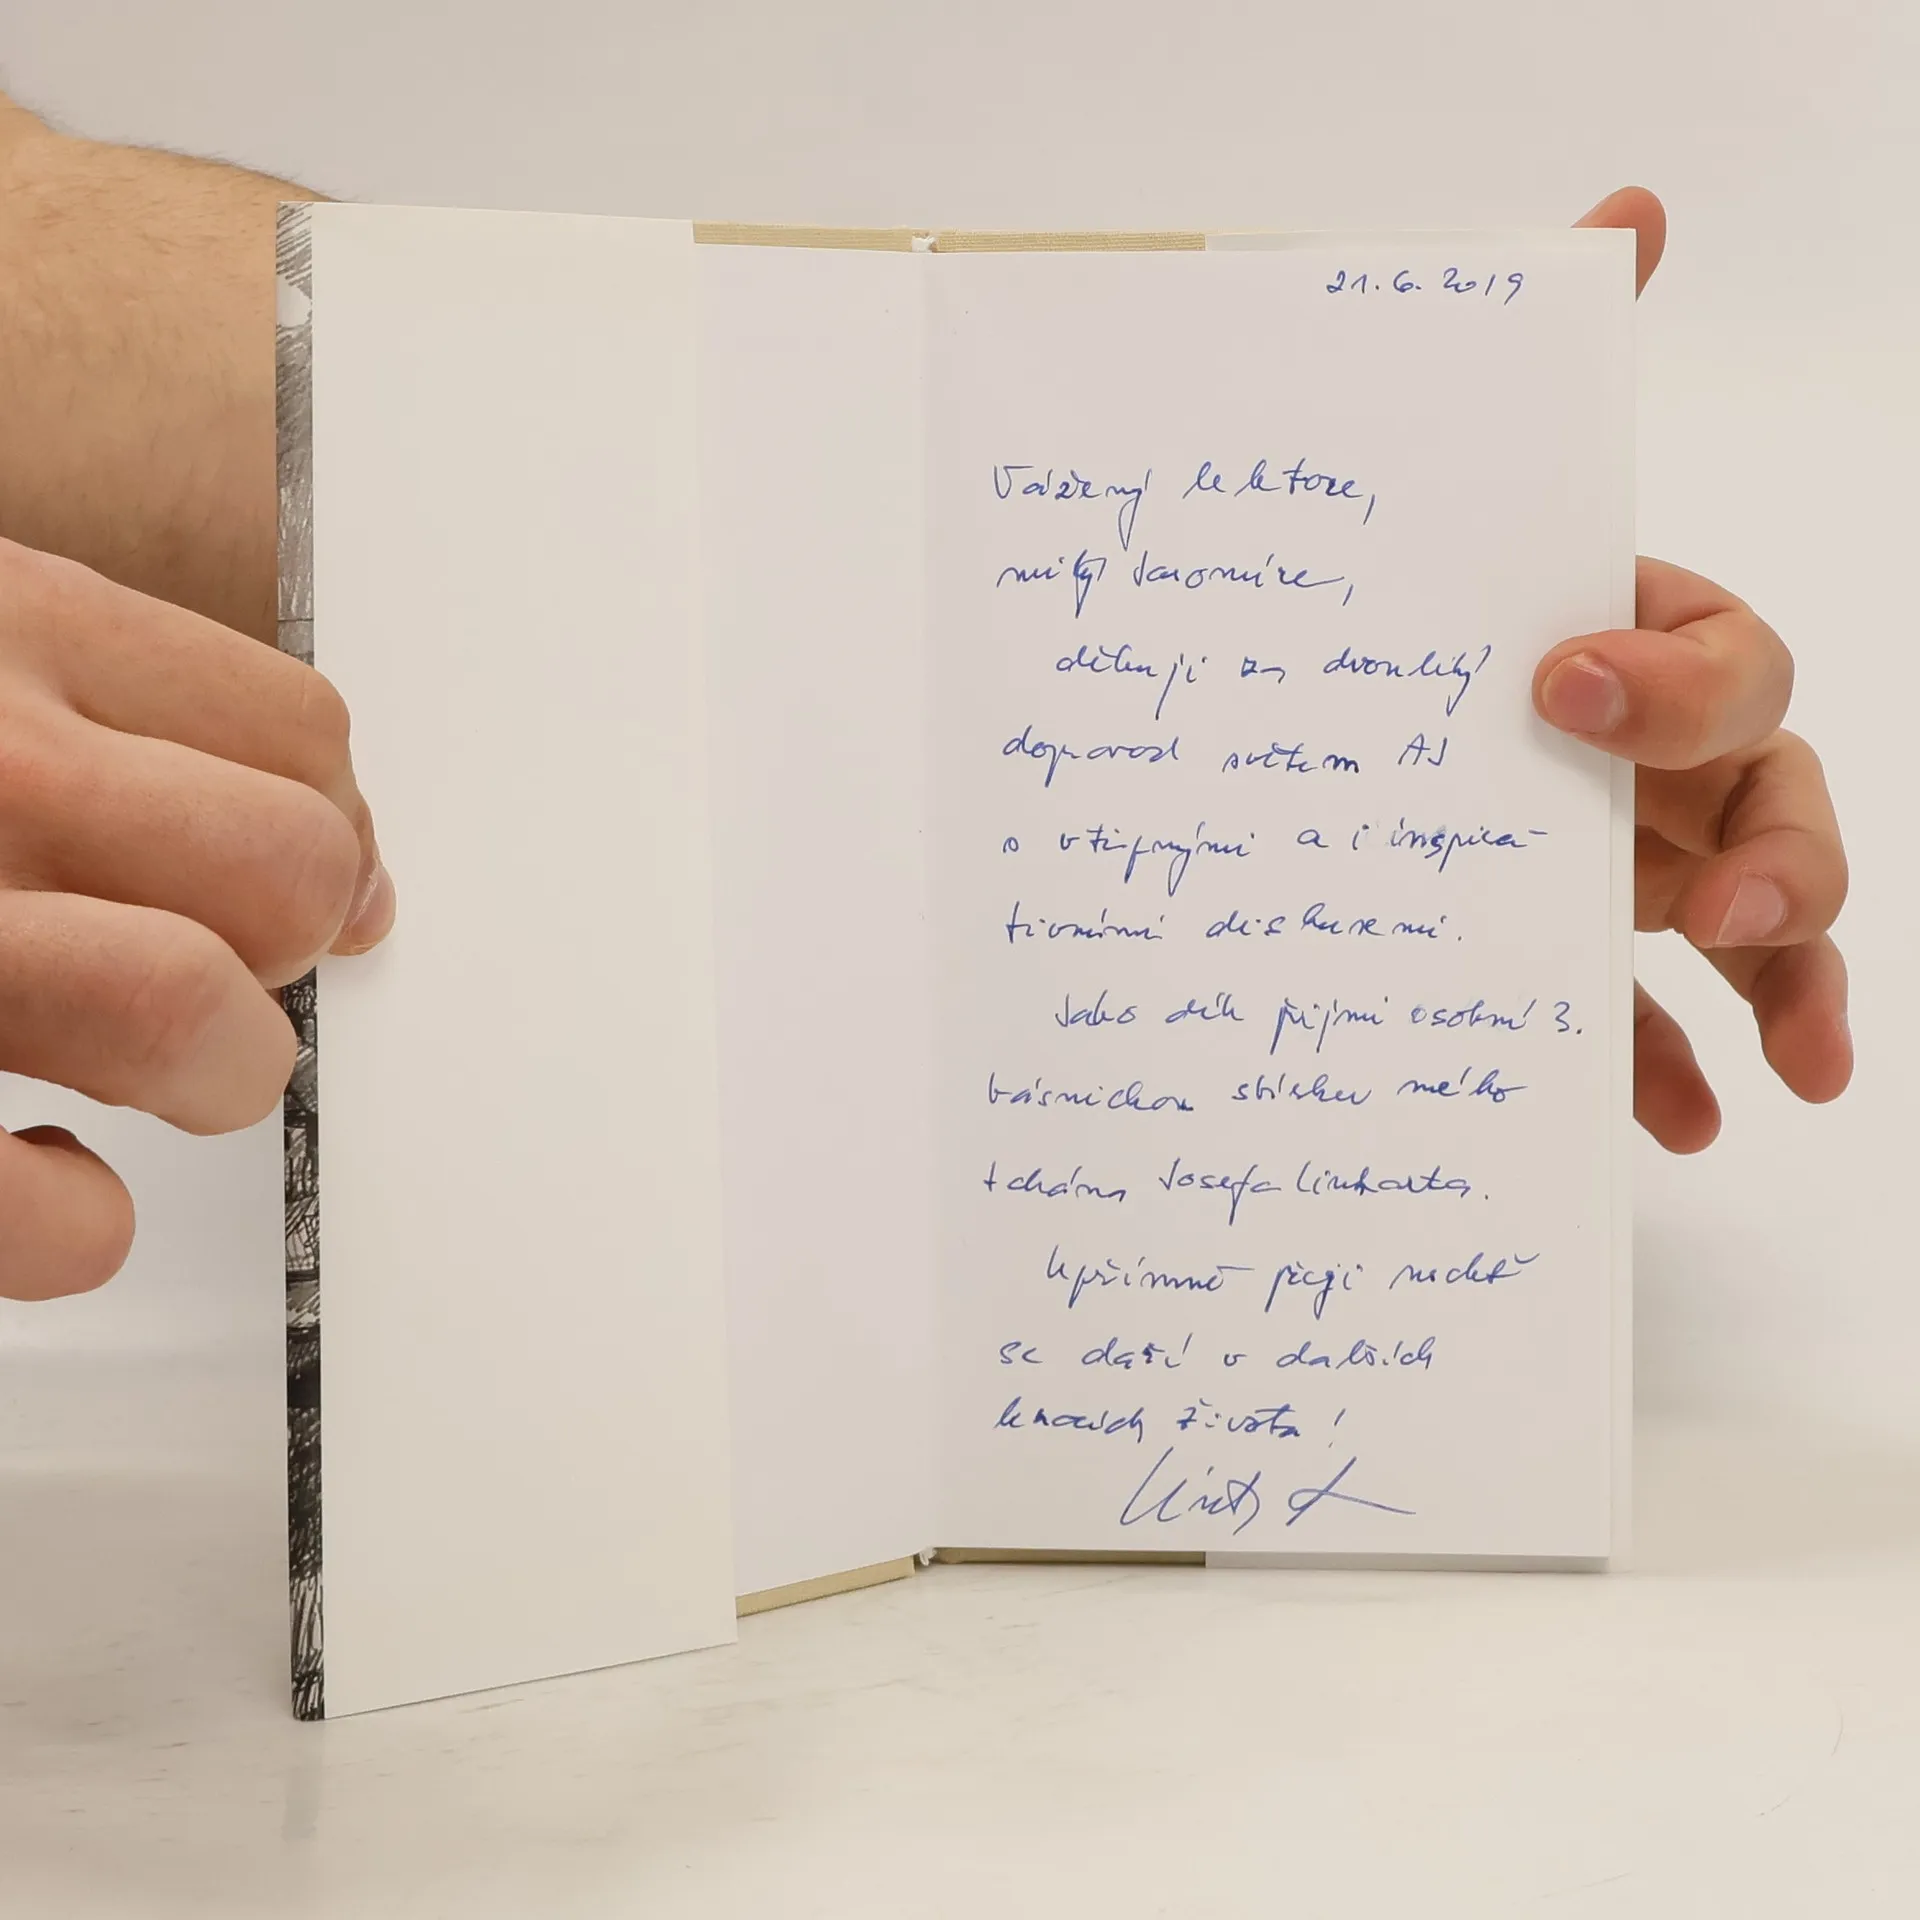 21.6.2019
Vážený lektore,
milý Jaromíre,
děkuji za dvoulitý
doprovod světem AJ
s vtipnými a i inspira-
tivními diskuzemi.
Jako dík přijmi osobní 3.
básnickou sbírku mého
tchána Josefa Linharta.
Upřímně přeji nechť
se daří v dalších
krocích života!